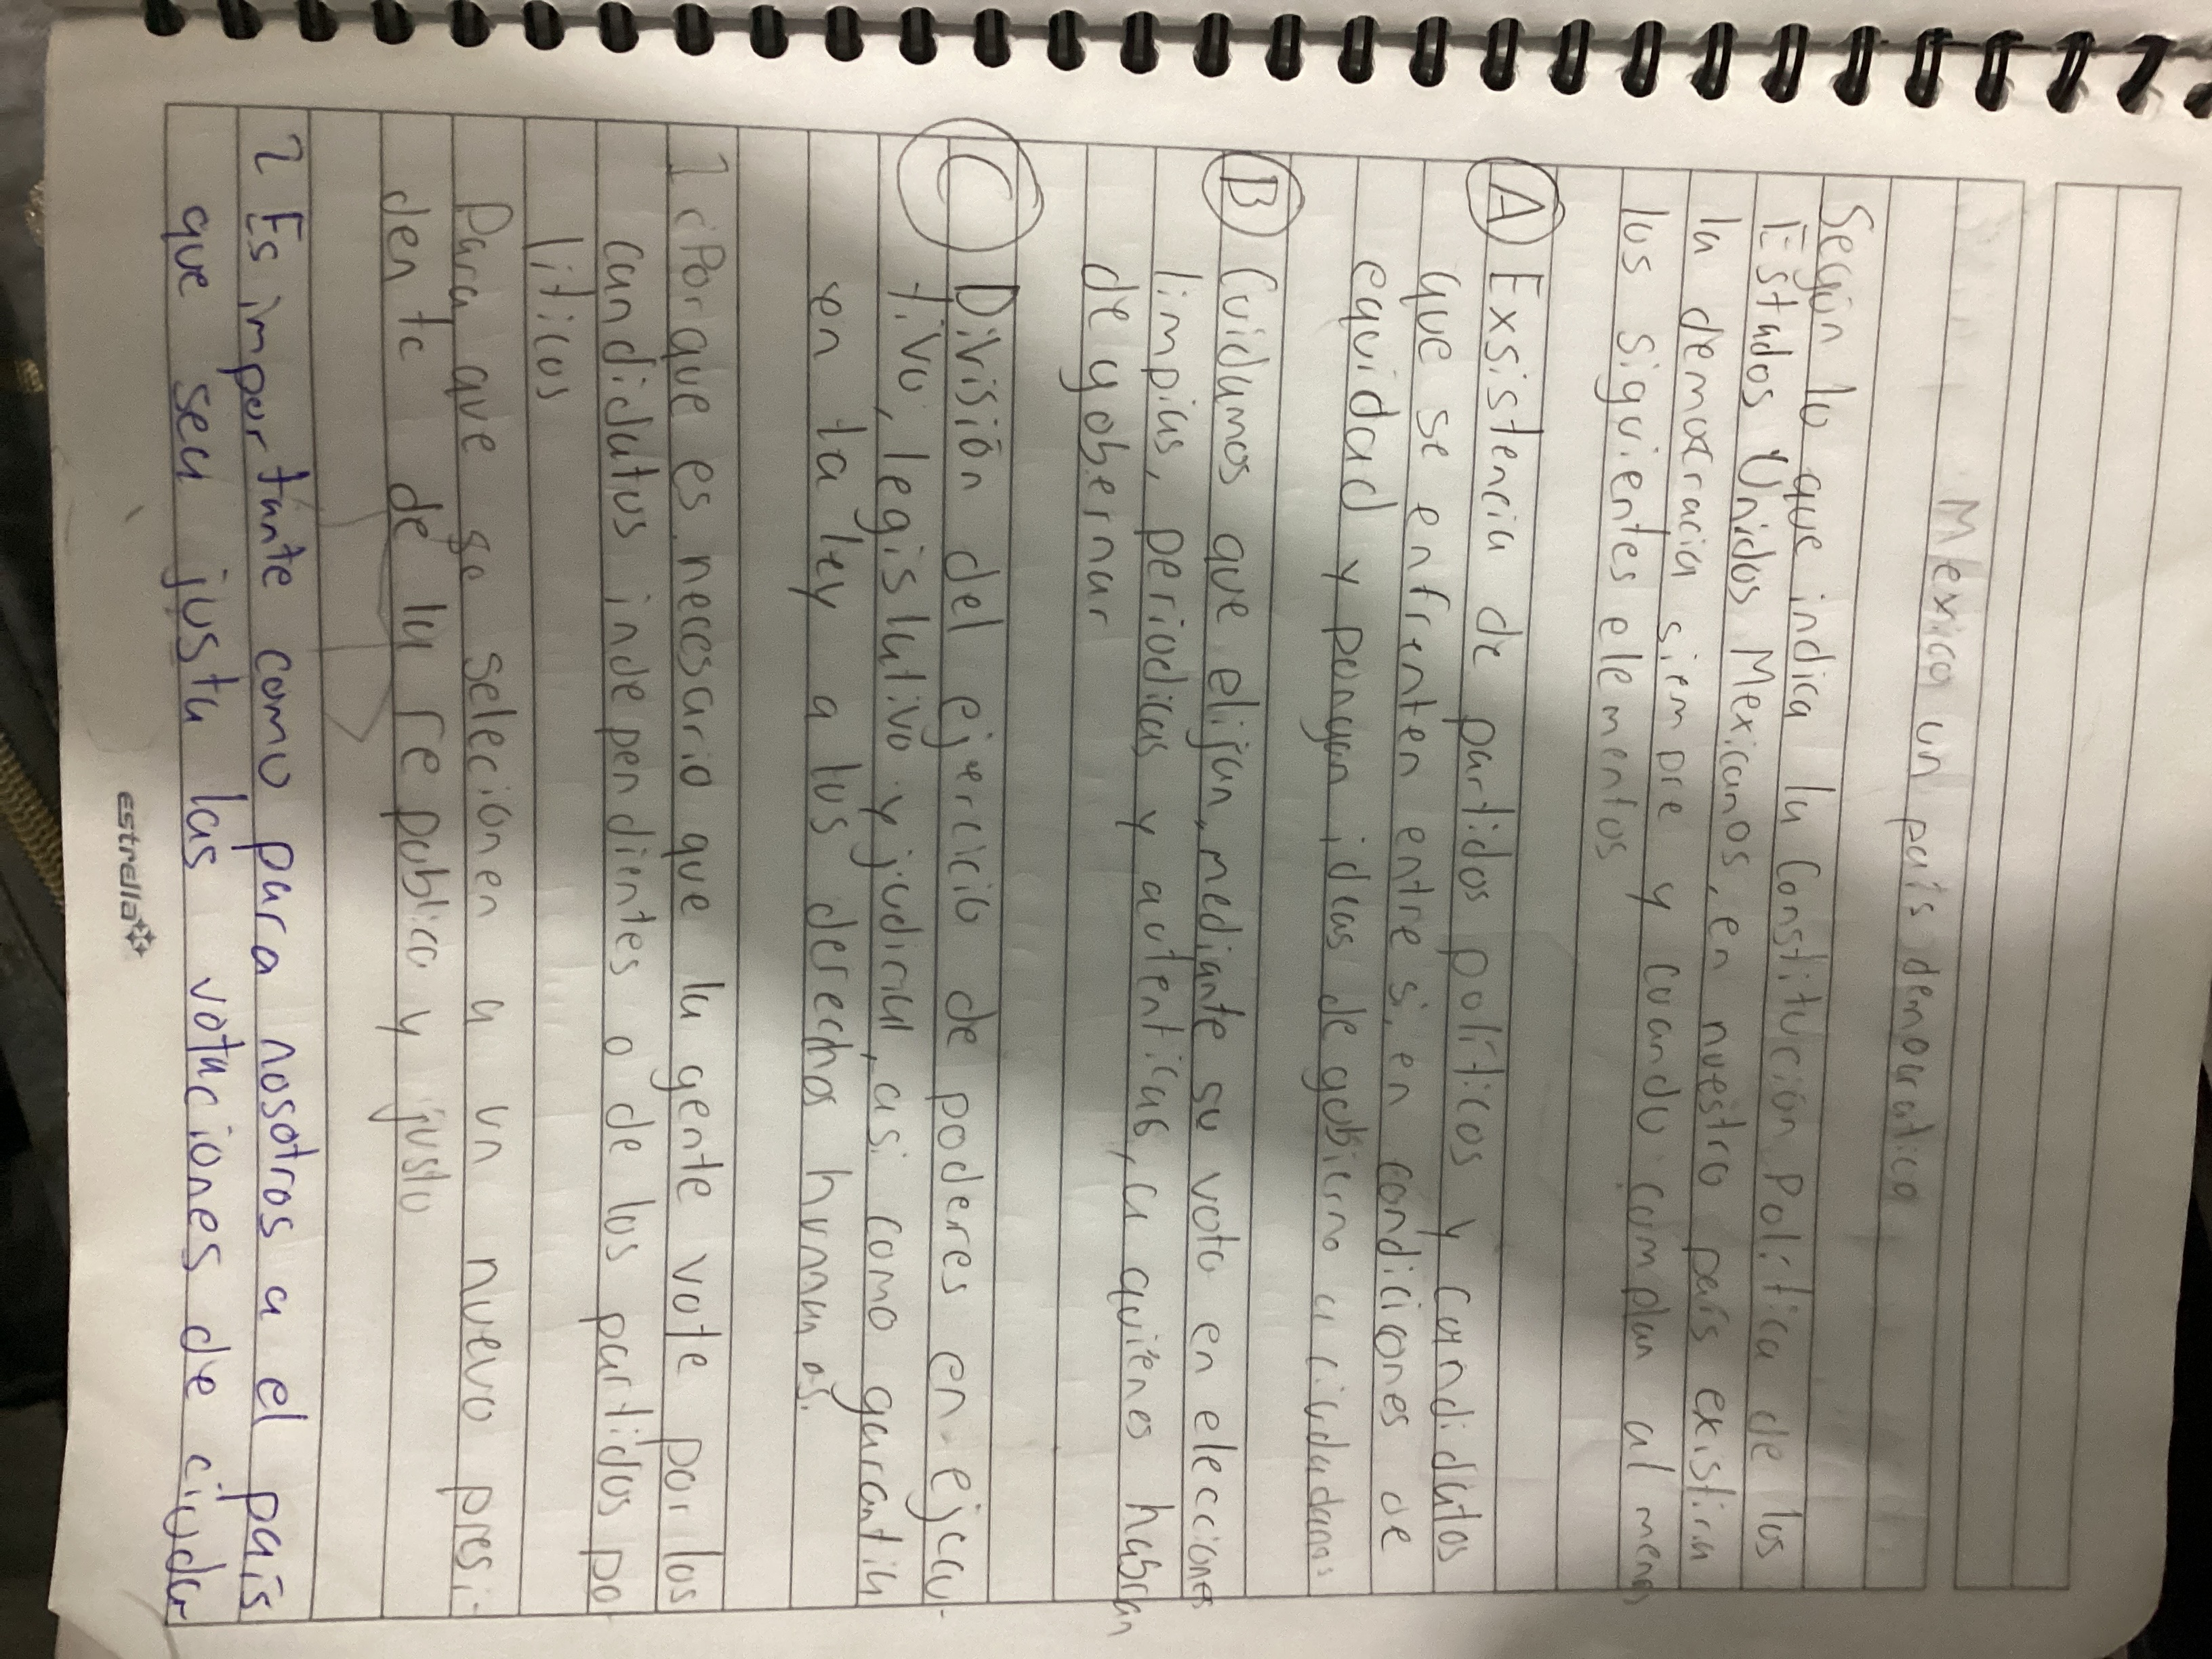 México un país democratico
Según lo que indica la Constitución Política de los
Estados Unidos Mexicanos, en nuestro país existira
la democracia siempre y cuando cumplan al menos
los siguientes elementos
A Exsistencia de partidos políticos y candidatos
que se enfrenten entre si, en condiciones de
equidad y pongan ideas de gobierno a ciudadanos
B Cuidamos que elijan, mediante su voto en elecciones
limpias, periodicas y autenticas, a quienes habran
de gobernar
C División del ejercicio de poderes en ejecu-
tivo, legislativo y judicial, asi como garantia
en la ley a los derechos humanos.
1 ¿Porque es necesario que la gente vote por los
candidatos independientes o de los partidos po
liticos
Para que se selecionen a un nuevo presi-
dente de la republica y justo
2 Es importante como para nosotros a el país
que sea justa las votaciones de ciudar
estrella